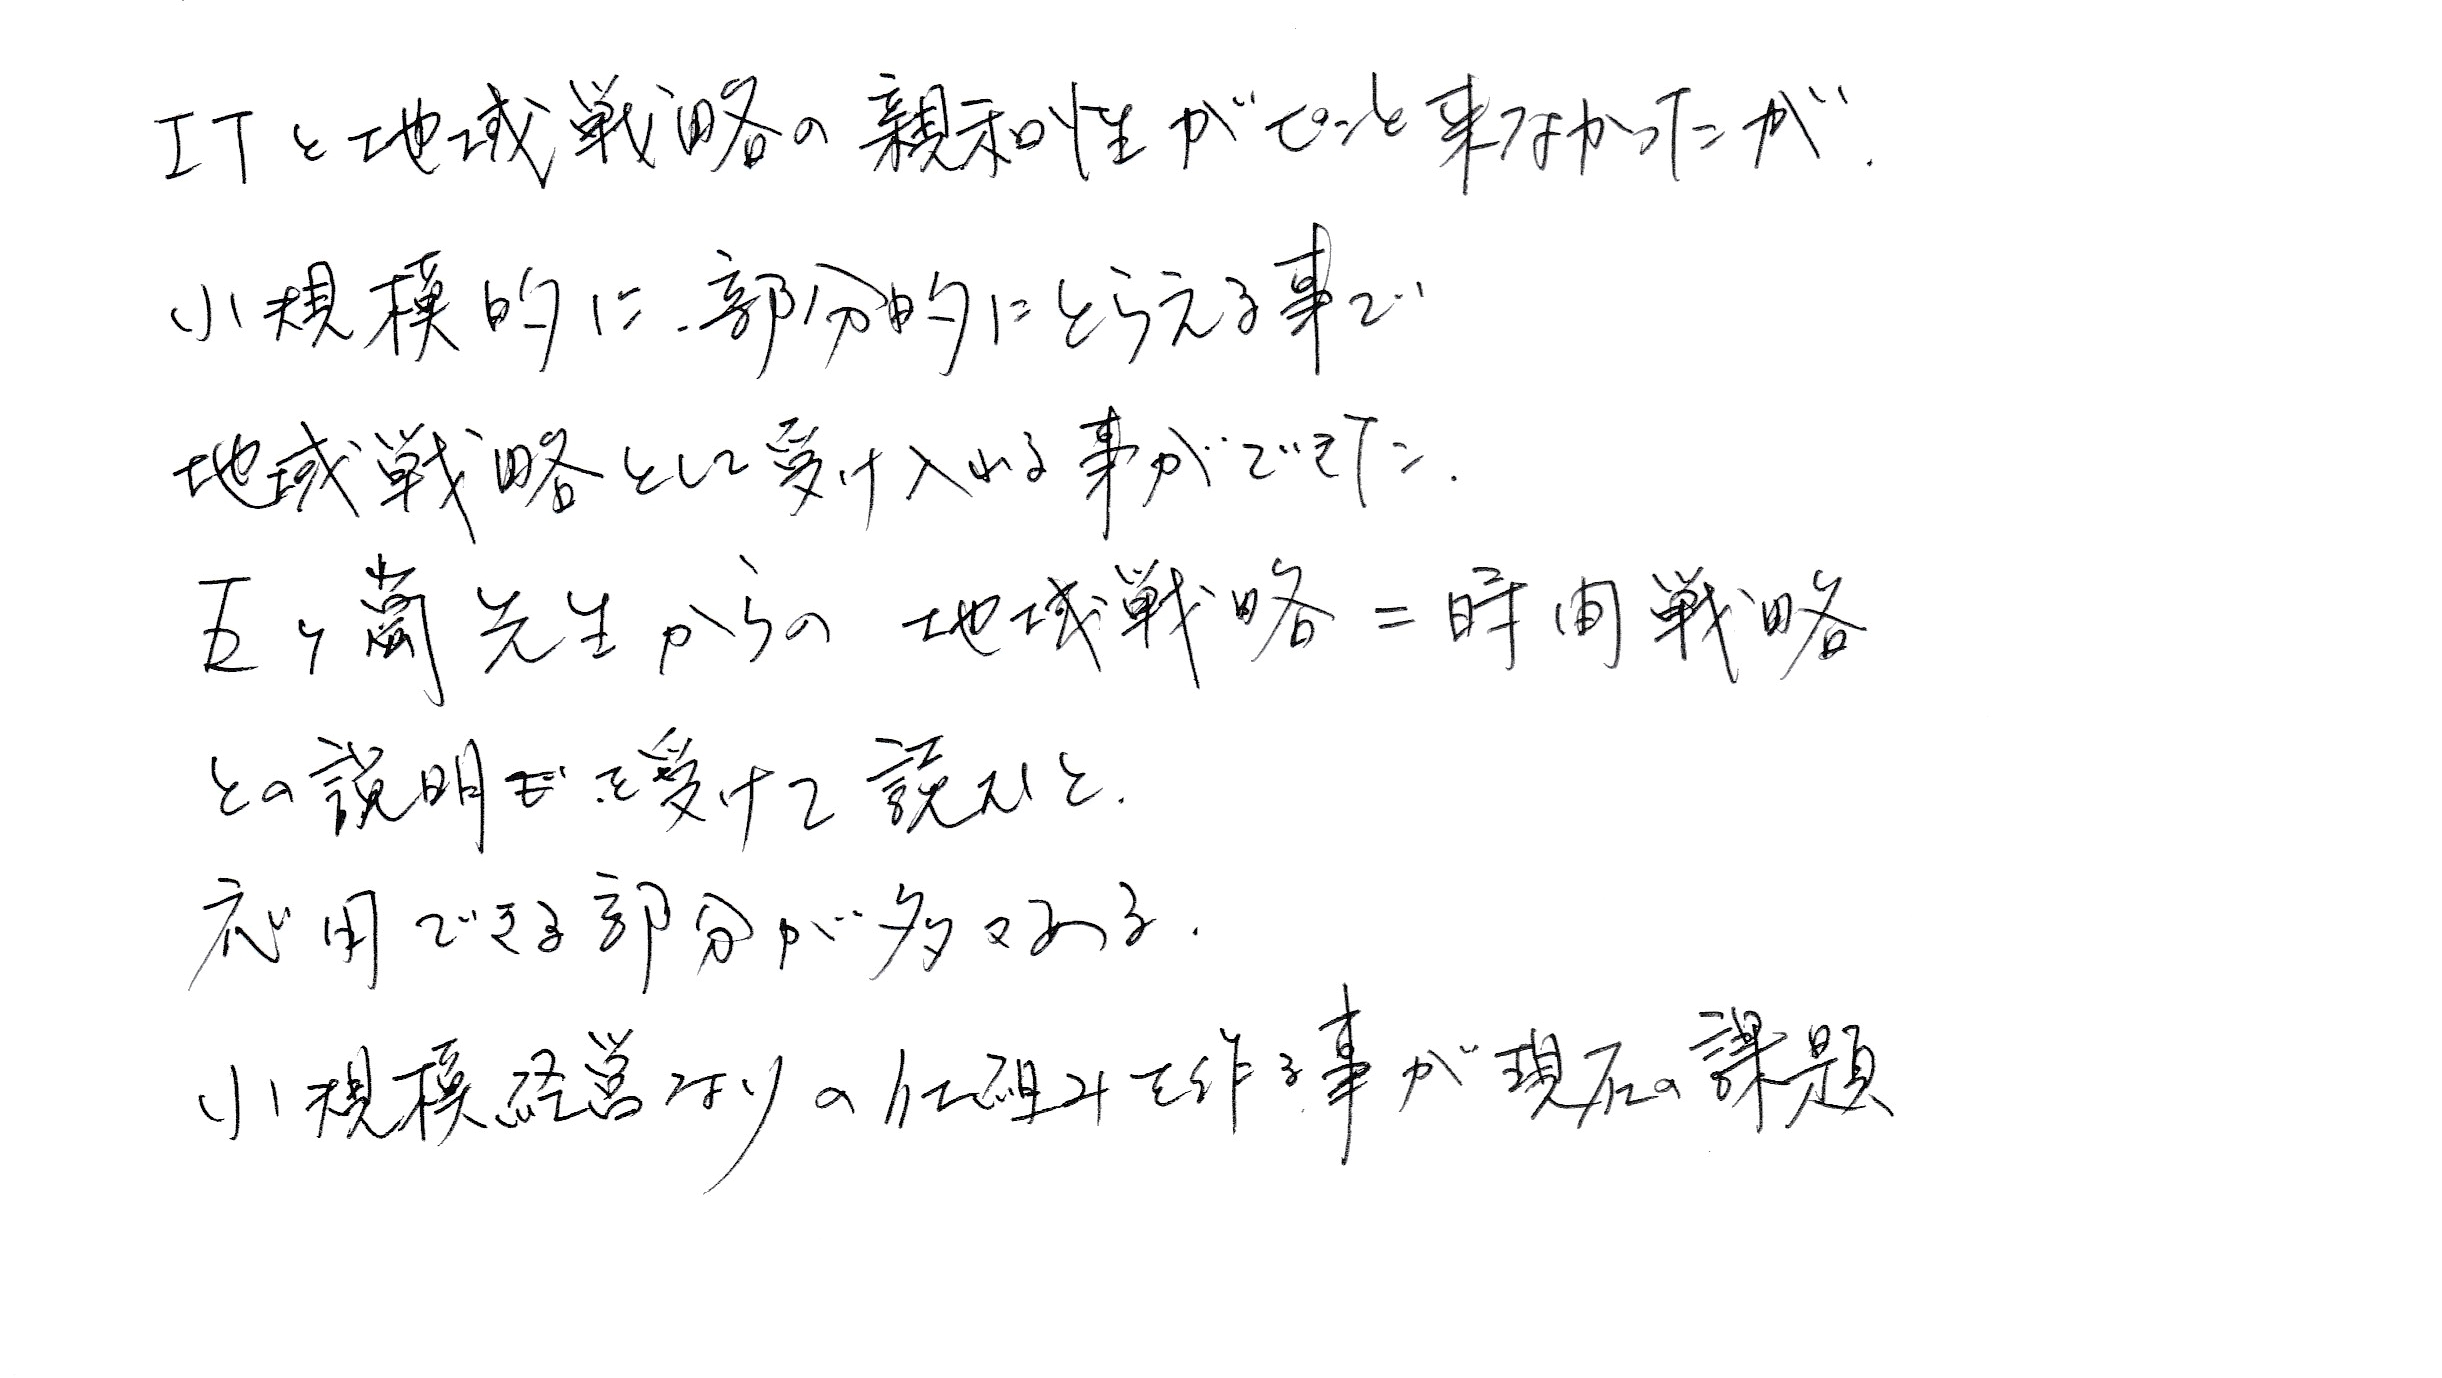 ITと地域戦略の親和性がピンと来なかったが.
小規模的に.部分的にとらえる事で
地域戦略として受け入れる事ができた.
五ヶ 先生からの 地域戦略=時間戦略
との説明を受けて読むと.
応用できる部分が多々ある.
小規模経営なりの仕組みを作る事が現在の課題